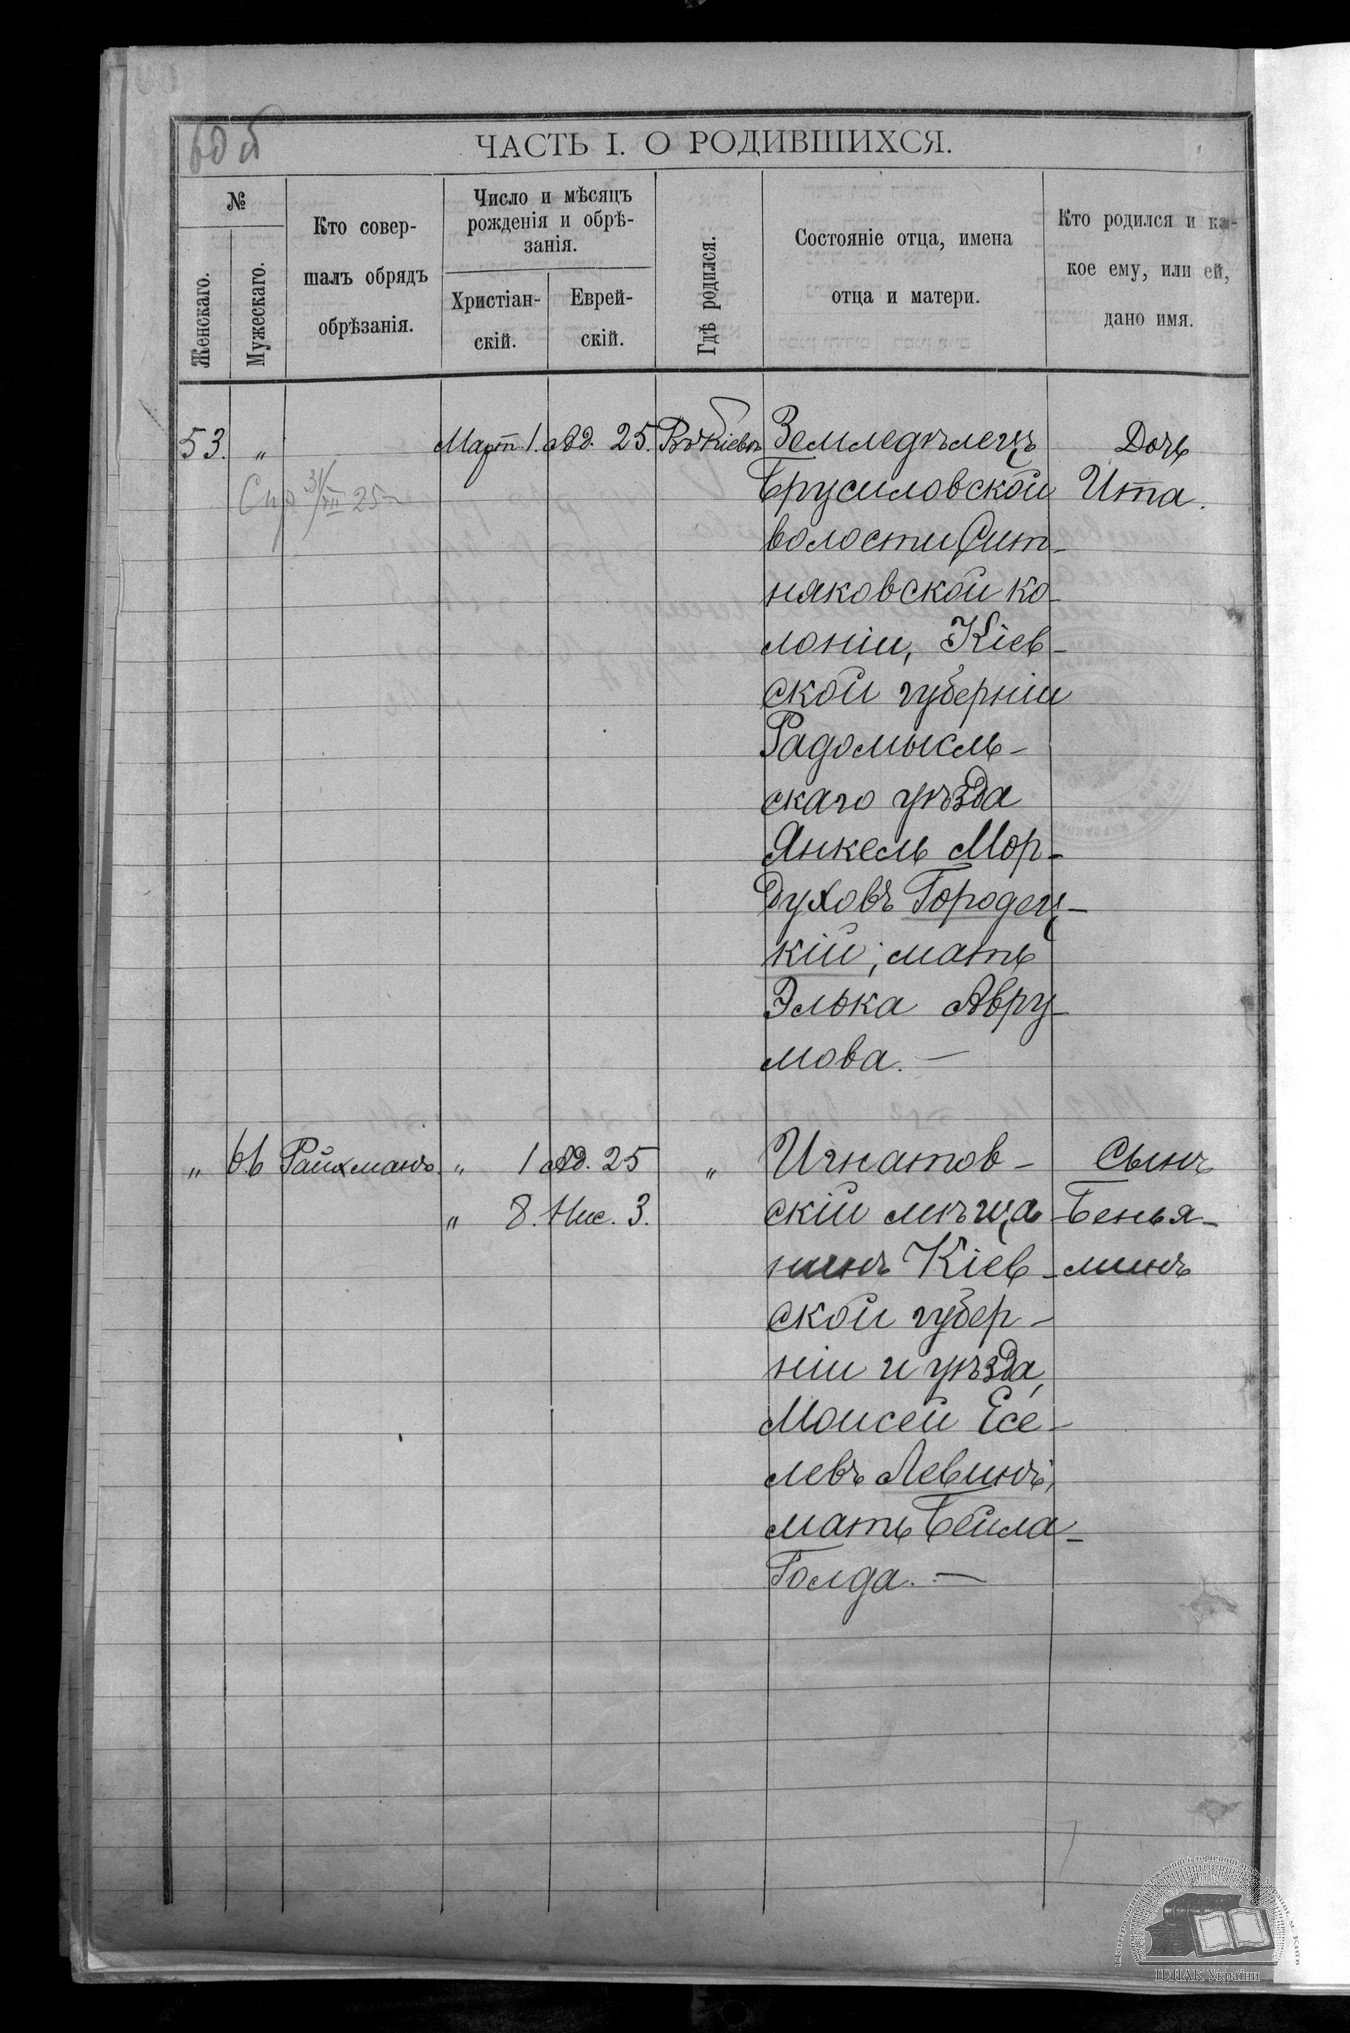 60 об
ЧАСТЬ I. О РОДИВШИХСЯ.
№
Женскаго.
Мужескаго.
Кто совер-
шалъ обрядъ
обрѣзанія.
Число и мѣсяцъ
рожденія и обрѣ-
занія.
Христіан-
скій.
Еврей-
скій.
Гдѣ родился.
Состояніе отца, имена
отца и матери.
Кто родился и ка-
кое ему, или ей,
дано имя.
53. „ Март. 1. Ад. 25. Въ Кіевѣ Земледѣлецъ Дочь
Брусиловской Ита.
волости Сит-
няковской ко-
лоніи, Кіев-
ской губерніи
Радомысль-
скаго уѣзда
Янкель Мор-
духовъ Городец-
кій; мать
Элька Авру-
мова. —
„ 66 Райхманъ. „ 1 Ад. 25 „ Игнатов- Сынъ
„ 8. Нис. 3. скій мѣща- Бенья-
нинъ Кіев- минъ
ской губер-
ніи и уѣзда,
Моисей Есе-
левъ Левинъ,
мать Бейла-
Голда. —
ЦДІАК України